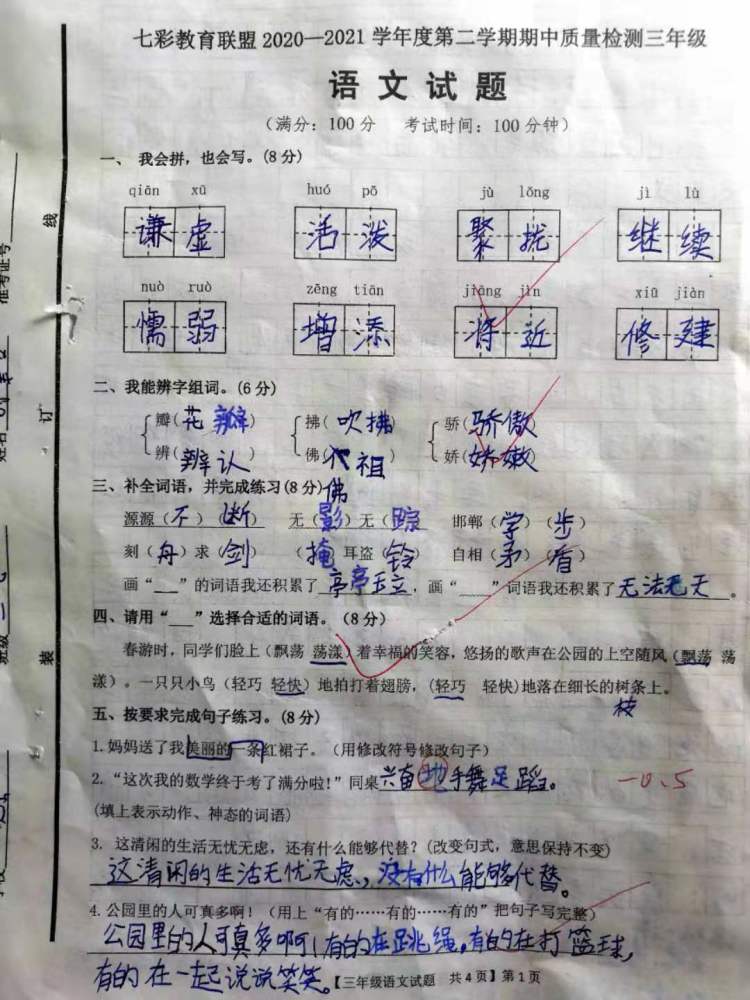 七彩教育联盟2020—2021学年度第二学期期中质量检测三年级
语文试题
（满分：100分 考试时间：100分钟）
一、我会拼，也会写。(8分)
qiān xū huó pō jù lǒng jì lù
谦虚 活泼 聚拢 继续
nuò ruò zēng tiān jiāng jìn xiū jiàn
懦弱 增添 将近 修建
二、我能辨字组词。(6分)
瓣(花瓣) 拂(吹拂) 骄(骄傲)
辨(辨认) 佛(祖) 娇(娇嫩)
佛
三、补全词语，并完成练习(8分)
源源（不）（断） 无（影）无（踪） 邯郸（学）（步）
刻（舟）求（剑） （掩 耳盗（铃） 自相（矛）（盾）
画“__”的词语我还积累了 亭亭玉立，画“___”词语我还积累了无法无天。
四、请用“__”选择合适的词语。（8分）
春游时，同学们脸上（飘荡 荡漾）着幸福的笑容，悠扬的歌声在公园的上空随风（飘荡 荡
漾）。一只只小鸟（轻巧 轻快）地拍打着翅膀，(轻巧 轻快)地落在细长的树条上。
枝
五、按要求完成句子练习。(8分)
1.妈妈送了我美丽的一条红裙子。（用修改符号修改句子）
2.“这次我的数学终于考了满分啦！”同桌兴奋地手舞足蹈。 -0.5
(填上表示动作、神态的词语)
3. 这清闲的生活无忧无虑，还有什么能够代替？(改变句式，意思保持不变)
这清闲的生活无忧无虑，没有什么能够代替。
4.公园里的人可真多啊！（用上“有的……有的……有的”把句子写完整）
公园里的人可真多啊！有的在跳绳，有的在打篮球，
有的在一起说说笑笑。【三年级语文试题 共4页】第1页
线
订
装
准考证号
姓名
班级
学校